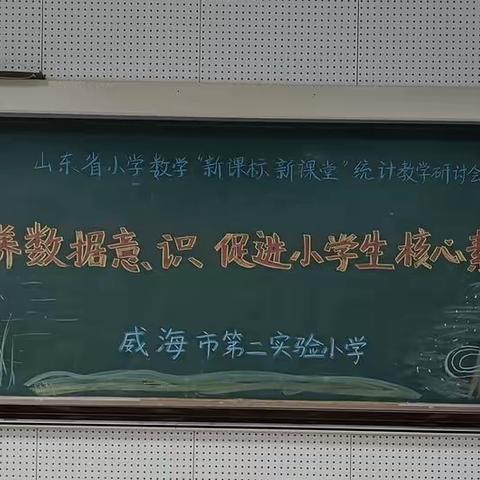 山东省小学数学“新课标、新课堂”统计教学研讨会
养数据意识 促进小学生核心素
威海市第二实验小学